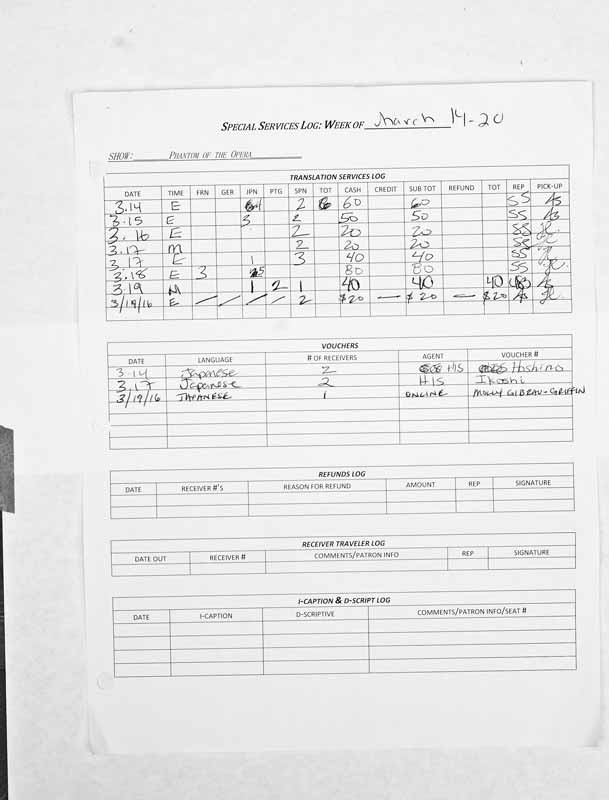 SPECIAL SERVICES LOG: WEEK OF March 14-20
SHOW: PHANTOM OF THE OPERA
TRANSLATION SERVICES LOG
DATE TIME FRN GER JPN PTG SPN TOT CASH CREDIT SUB TOT REFUND TOT REP PICK-UP
3.14 E 4 2 6 60 60 SS AS
3.15 E 3 2 50 50 SS AS
3.16 E 2 20 20 SS JC
3.17 M 2 20 20 SS JC
3.17 E 1 3 40 40 SS JC
3.18 E 3 5 80 80 SS JC
3.19 M 1 2 1 40 40 40 AS
3/19/16 E / / / / 2 $20 — $20 — $20 AS JC
VOUCHERS
DATE LANGUAGE # OF RECEIVERS AGENT VOUCHER #
3.14 Japanese 2 HIS Hoshino
3.17 Japanese 2 HIS Ikoshi
3/19/16 JAPANESE 1 ONLINE MOLLY GIBEAU-GRIFFIN
REFUNDS LOG
DATE RECEIVER #'S REASON FOR REFUND AMOUNT REP SIGNATURE
RECEIVER TRAVELER LOG
DATE OUT RECEIVER # COMMENTS/PATRON INFO REP SIGNATURE
I-CAPTION & D-SCRIPT LOG
DATE I-CAPTION D-SCRIPTIVE COMMENTS/PATRON INFO/SEAT #